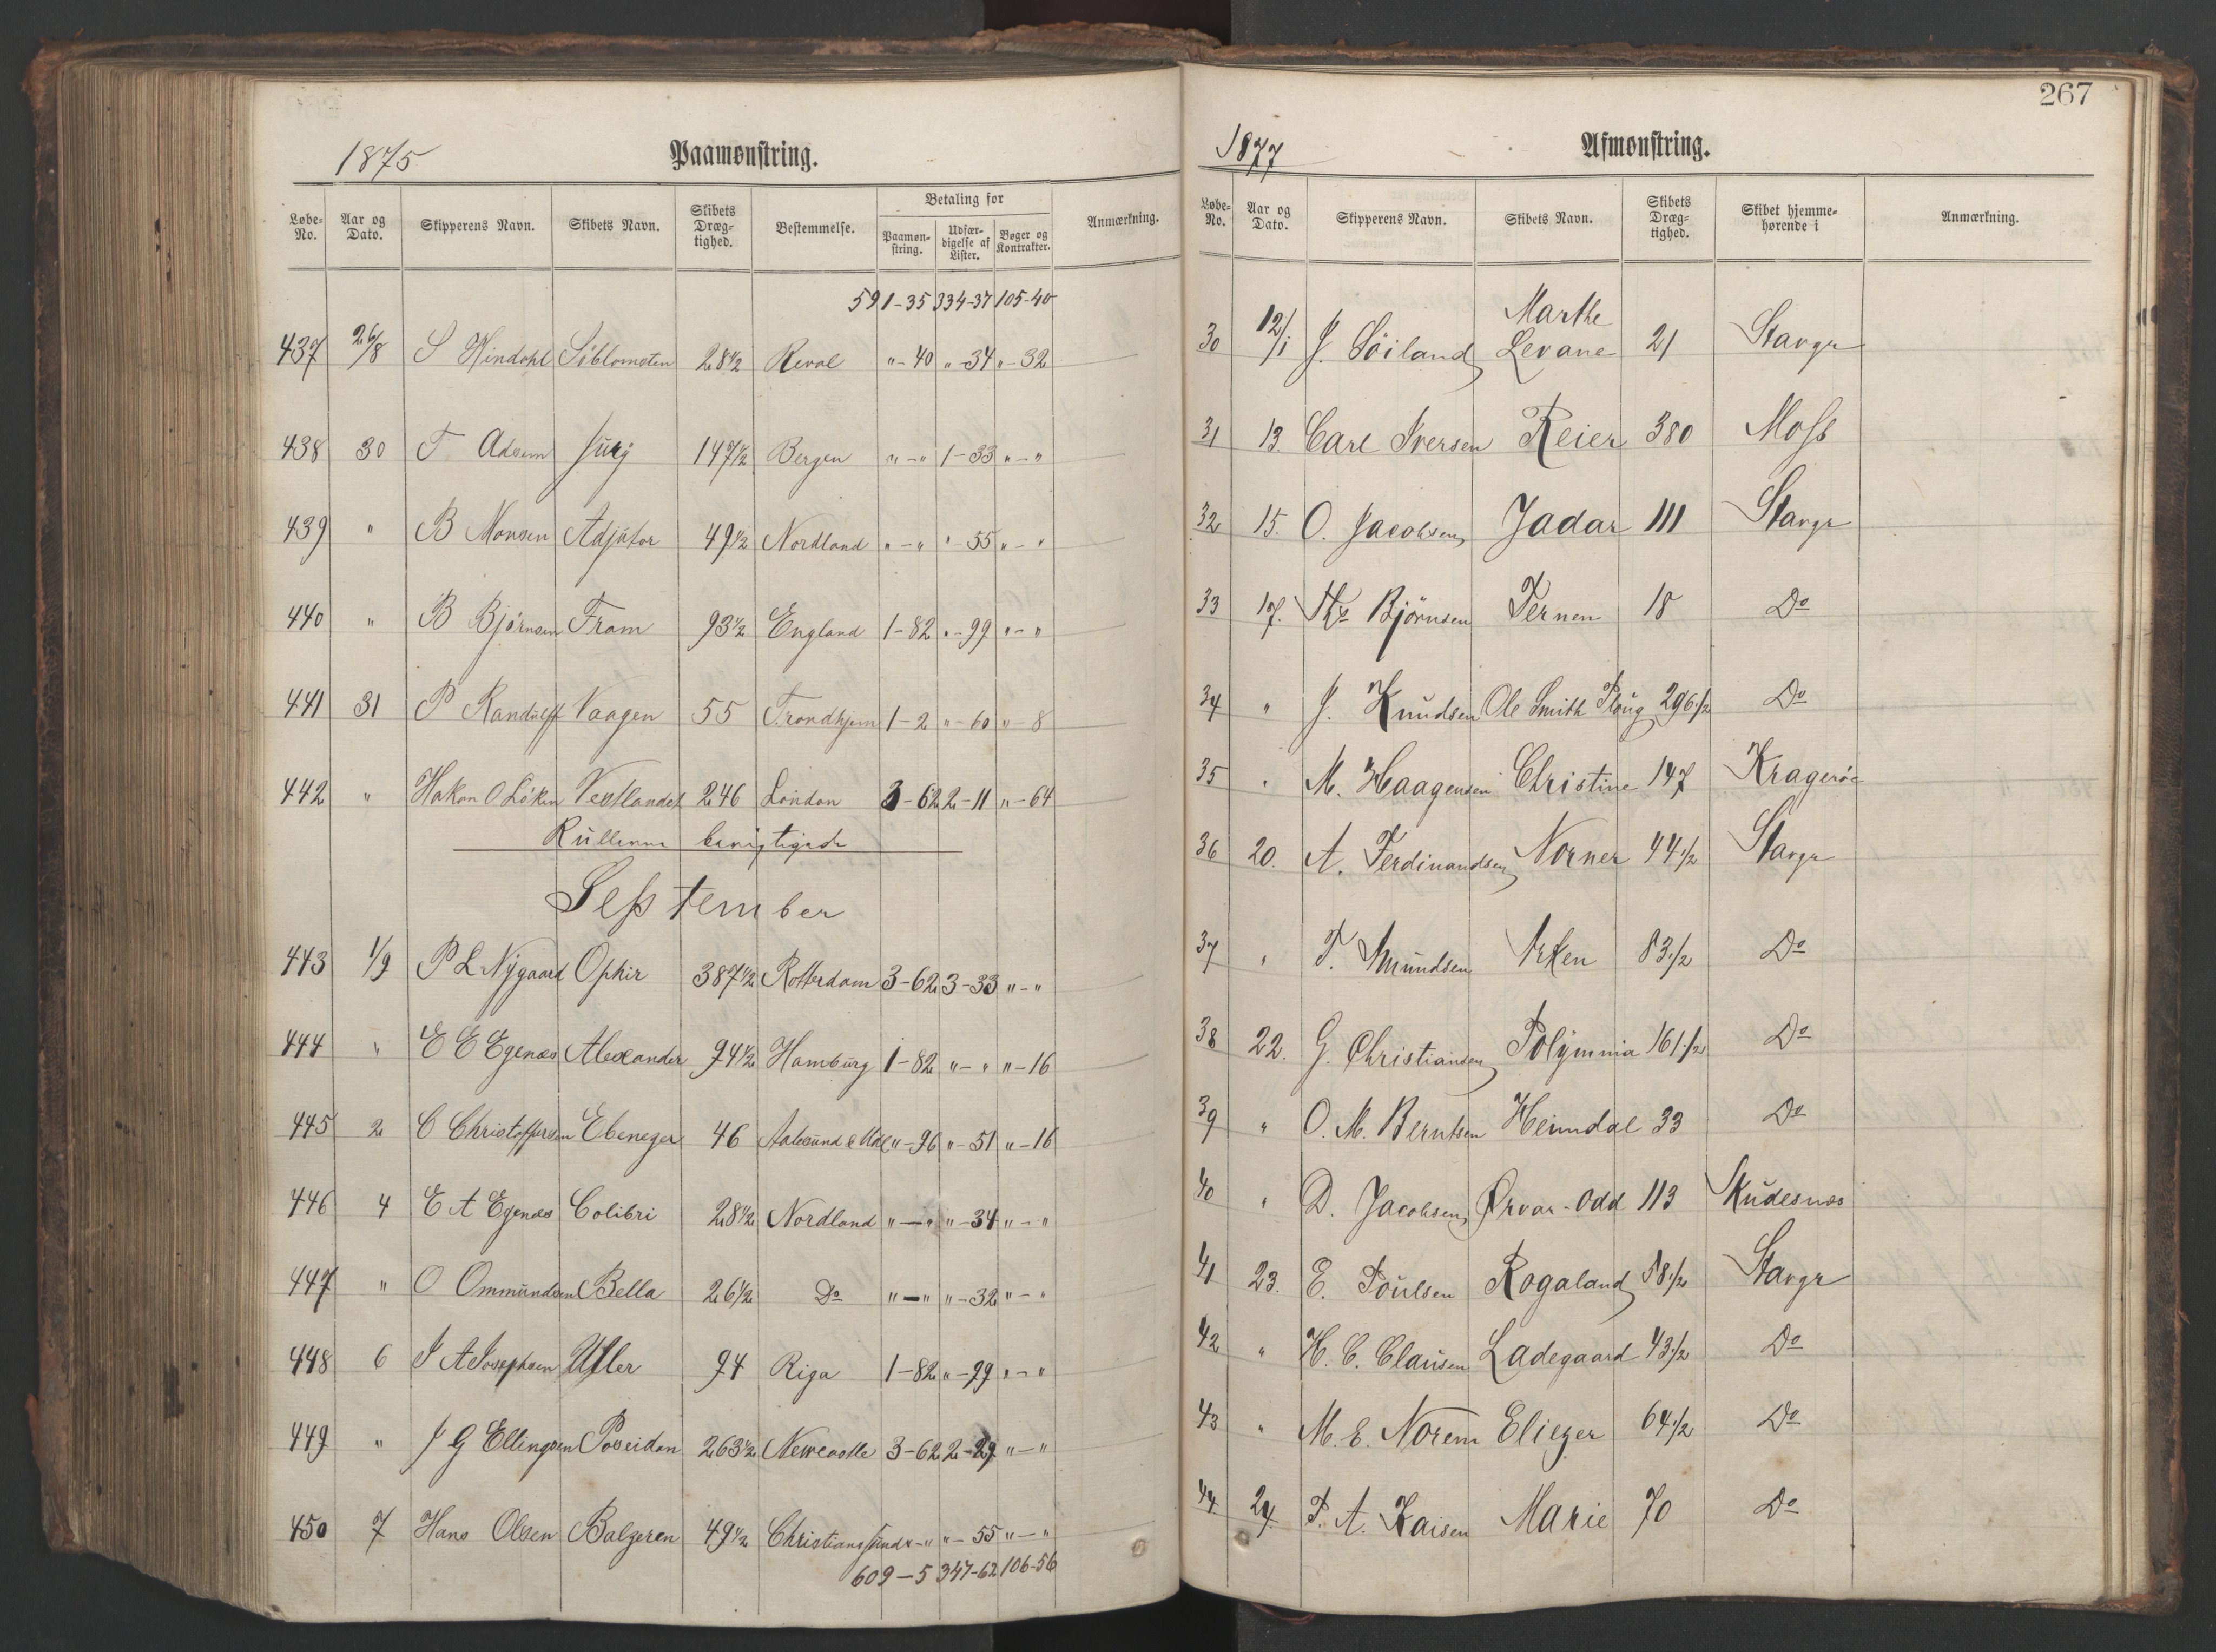 1875 Paamønstring.
Løbe-No. Aar og Dato. Skipperens Navn. Skibets Navn. Skibets Dræg-tighed. Bestemmelse. Betaling for Paamøn-string. Udfær-digelse af Lister. Bøger og Kontrakter. Anmærkning.
591-35 334-37 105-40
437 26/8 S Windahl Söblomsten 28 1/2 Reval "-40 "-34 "-32
438 30 T Adsem 147 1/2 Bergen "-" 1-33 "-"
439 " B Monsen Adjútor 49 1/2 Nordland "-" "-55 "-"
440 " B Bjórnsen Fram 93 1/2 England 1-82 "-99 "-"
441 31 P Randulff Vaagen 55 Trondhjem 1-2 "-60 "-8
442 " Hakon O Löken Vestlandet 246 London 3-62 2-11 "-64
Rüllerne berigtigede
September
443 1/9 P L Nygaard Ophir 387 1/2 Rotterdam 3-62 3-33 "-"
444 " E E Egenæs Alexander 94 1/2 Hamburg 1-82 "-" "-16
445 2 C Christoffersen Ebenezer 46 Aalesund "-96 "-51 "-16
446 4 E A Egenæs Colibri 28 1/2 Nordland "-" "-34 "-"
447 " O Ommundsen Bella 26 1/2 Do "-" "-32 "-"
448 6 J A Josephsen Uller 94 Riga 1-82 "-99 "-"
449 " J G Ellingsen Poseidon 263 1/2 Newcastle 3-62 2-29 "-"
450 7 Hans Olsen Balzeren 49 1/2 Christianssund "-" "-55 "-"
609-5 347-62 106-56
267
1877 Afmønstring.
Løbe-No. Aar og Dato. Skipperens Navn. Skibets Navn. Skibets Dræg-tighed. Skibet hjemme-hørende i Anmærkning.
30 12/1 J. Söiland Marthe Levane 21 Stavgr
31 13. Carl Iversen Reier 380 Moss
32 15. O. Jacobsen Jadar 111 Stavgr
33 17. Ths Björnsen Ternen 18 Do
34 " J. Knudsen Ole Smith Ploug 296 1/2 Do
35 " M. Haagensen Christine 147 Krageröe
36 20. A. Ferdinandsen Norner 44 1/2 Stavgr
37 " T. Amundsen Arken 83 1/2 Do
38 22. G. Christiansen Polymnia 161 1/2 Do
39 " O. M. Berntsen Heimdal 33 Do
40 " D. Jacobsen Ørvar-Odd 113 Skudesnæs
41 23. E. Poulsen Rogaland 58 1/2 Stavgr
42 " H. C. Clausen Ladegaard 43 1/2 Do
43 " M. E. Norem Eliezer 64 1/2 Do
44 24. T. A. Kaisen Marie 70 Do